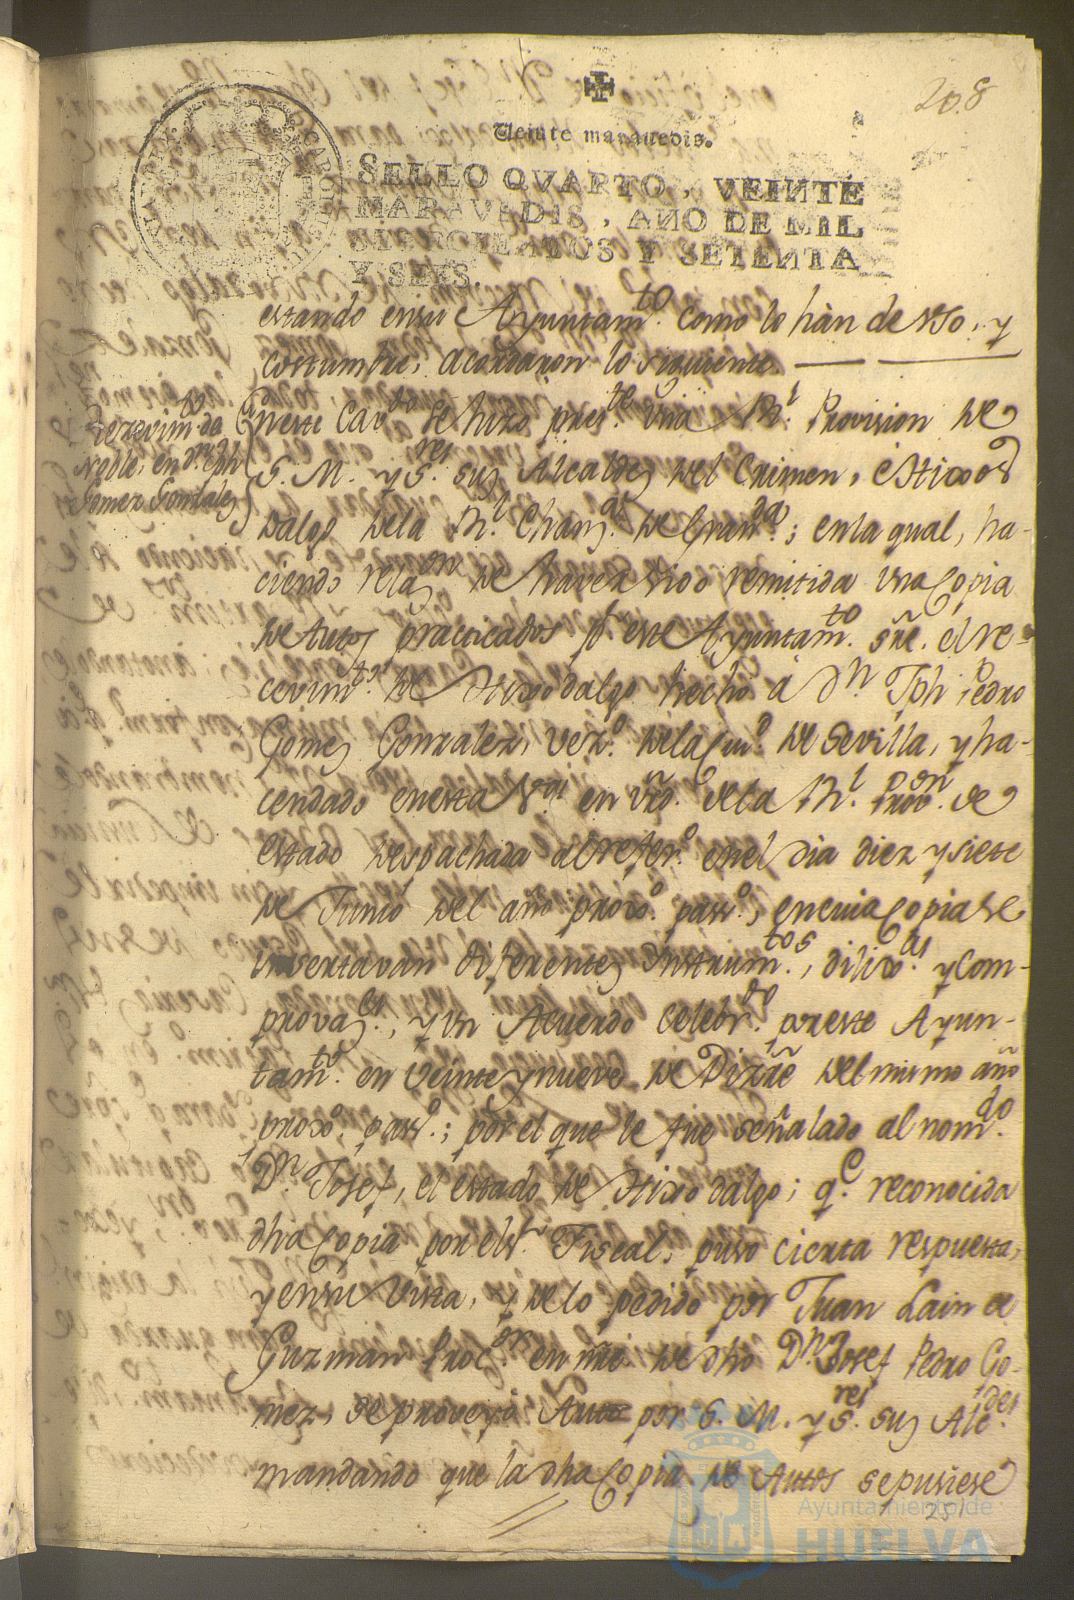 208
Veinte maravedis.
SELLO QVARTO, VEINTE
MARAVEDIS, AÑO DE MIL
SETECIENTOS Y SETENTA
Y SEYS.
estando en su Ayuntam.to como lo hàn de vso, y
costumbre, acordaron lo siguiente.
Rezevim.to de
Noble, en Dn. Jph
Gomez Gonzalez
En este Cav.do se hizo pres.te una Rl. Provision de
S. M. y S.res sus Alcaldes del Crimen, e Hixos
dalgo de la Rl. Chanz.a de Gran.da; en la qual, ha-
ciendo relaz.on de haver sido remitida una Copia
de Autos practicados pr. este Ayuntam.to sre. el re-
cevim.to de Hixo dalgo hecho à Dn. Jph Pedro
Gomez Gonzalez, vez.o de la Ciu.d de Sevilla, y ha-
cendado en esta V.a en vrd. de la Rl. Prov.on de
estado despachada al refer.o en el dia diez y siete
de Junio del año proxo. pasd.o, en cuia Copia se
insertavan diferentes Instrum.tos, dilix.as y com-
provaz.es, y un Acuerdo celebr.do por este Ayun-
tam.to en veinte y nueve de Dizre del mismo año
proxo. pasd.o; por el que le fue señalado al nom.do
Dn. Josef, el estado de Hixo dalgo; q.e reconocida
dha Copia por el Sr. Fiscal, puso cierta respuesta,
y en su vista, y de lo pedido por Juan Lain de
Guzman Proc.or en nre de dho Dn. Josef Pedro Go-
mez, se proveyò Auto por S. M. y S.res sus Alc.des
mandando que la dha Copia de Autos se pusiese
251
Ayuntamiento de
HUELVA